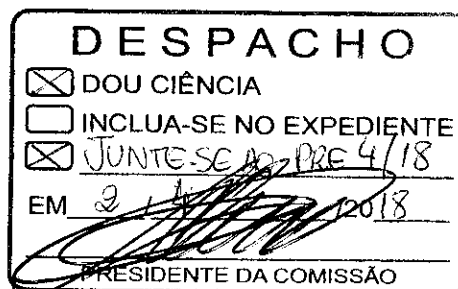 DESPACHO
DOU CIÊNCIA
INCLUA-SE NO EXPEDIENTE
JUNTE-SE AO PRE 4/18
EM 2 / 4 / 2018
PRESIDENTE DA COMISSÃO